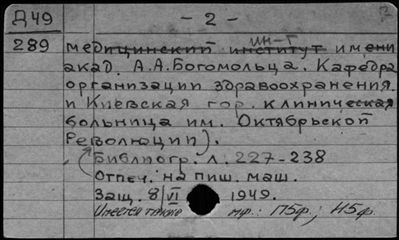 Д49
- 2 -
289
медицинский институт ин-т имени
акад. А.А.Богомольца. Кафедра
организации здравоохранения
и Киевская гор. клиническая
больница им. Октябрьской
Революции).
Библиогр. л. 227-238
Отпеч. на пиш. маш.
Защ. 8/VI 1949.
Имеется также мф.: П5ф; И5ф.